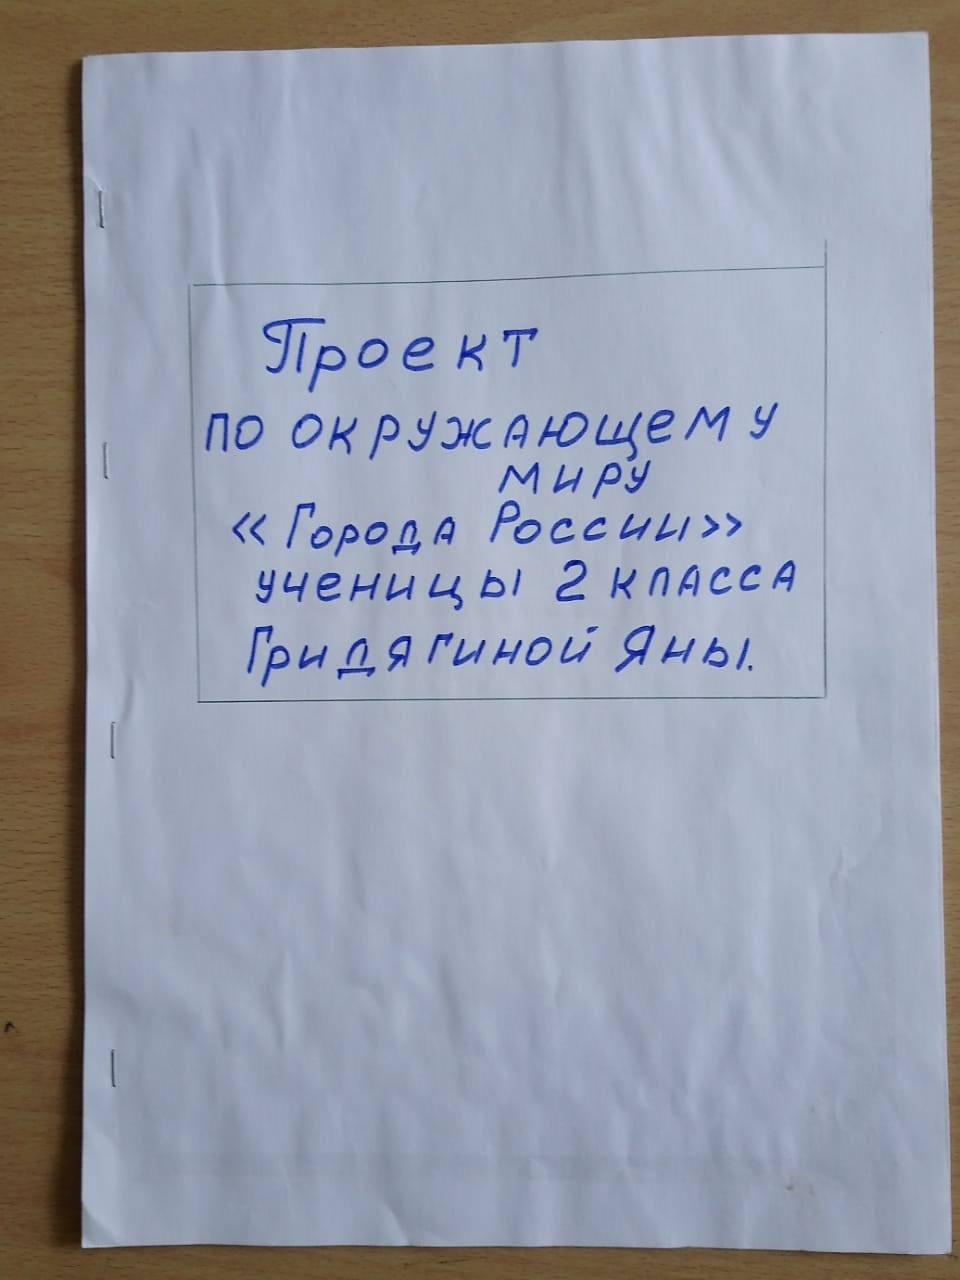 Проект
по окружающему
миру
«Города России»
ученицы 2 класса
Гридягиной Яны.